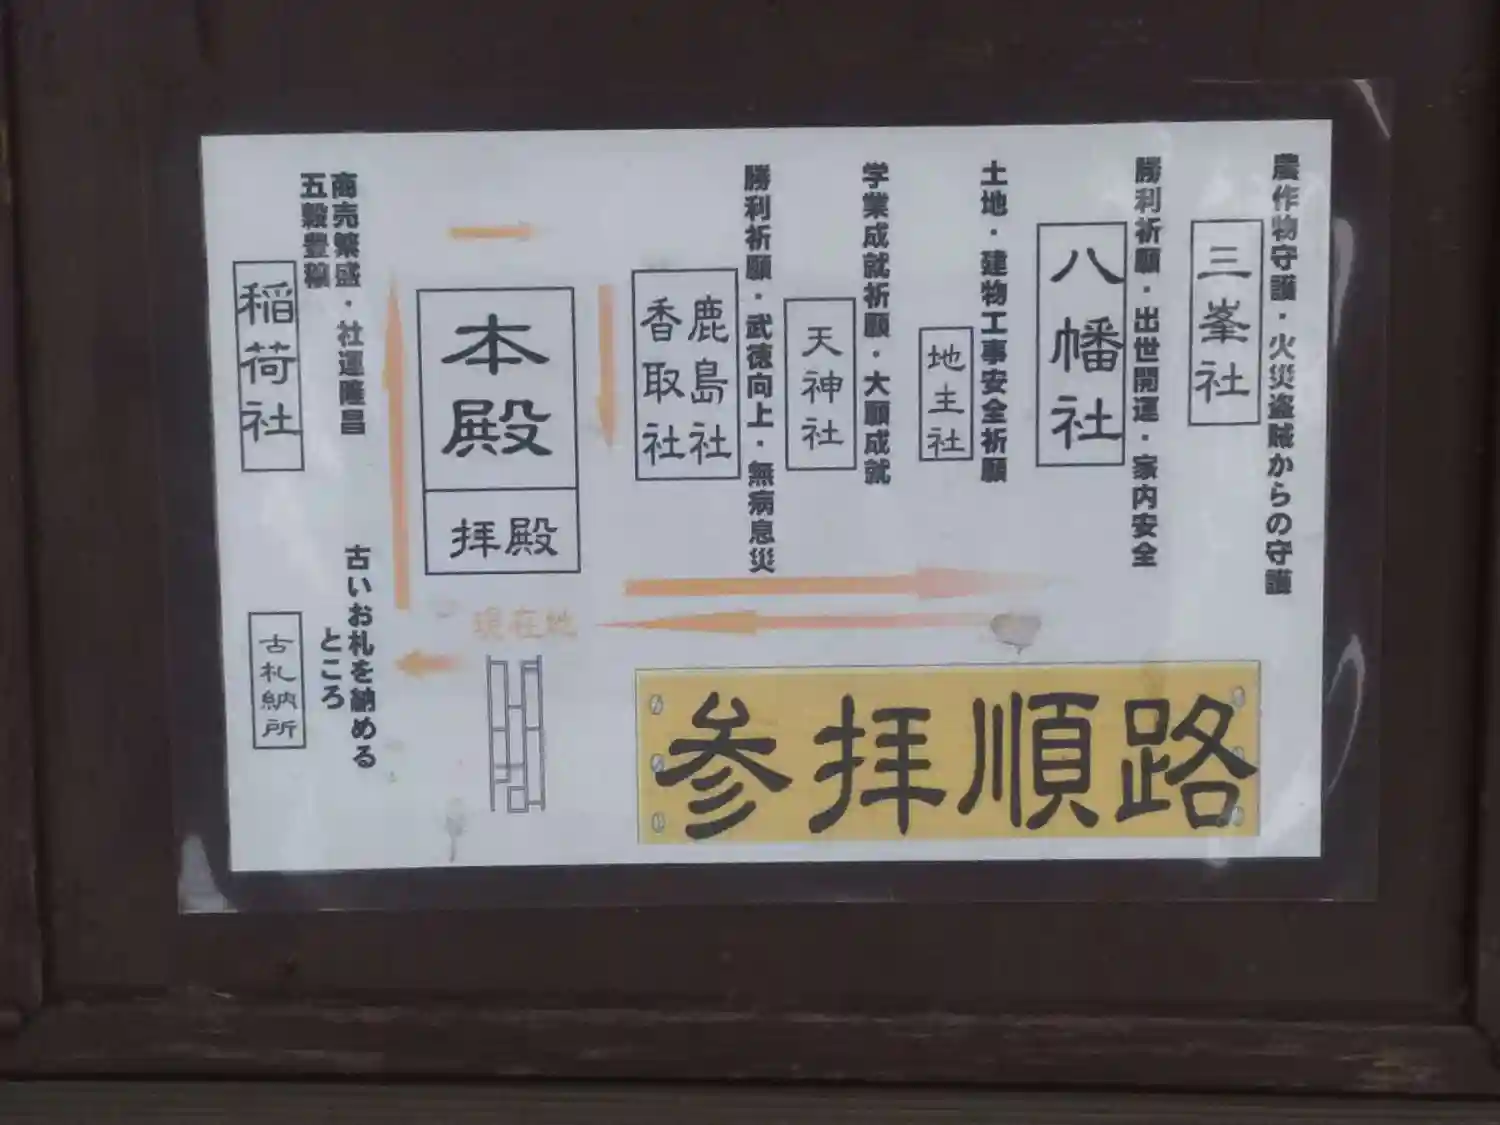 農作物守護・火災盗賊からの守護
三峯社
勝利祈願・出世開運・家内安全
八幡社
土地・建物工事安全祈願
地主社
学業成就祈願・大願成就
天神社
勝利祈願・武徳向上・無病息災
鹿島社
香取社
本殿
拝殿
現在地
商売繁盛・社運隆昌
五穀豊穣
稲荷社
古いお札を納める
ところ
古札納所
参拝順路